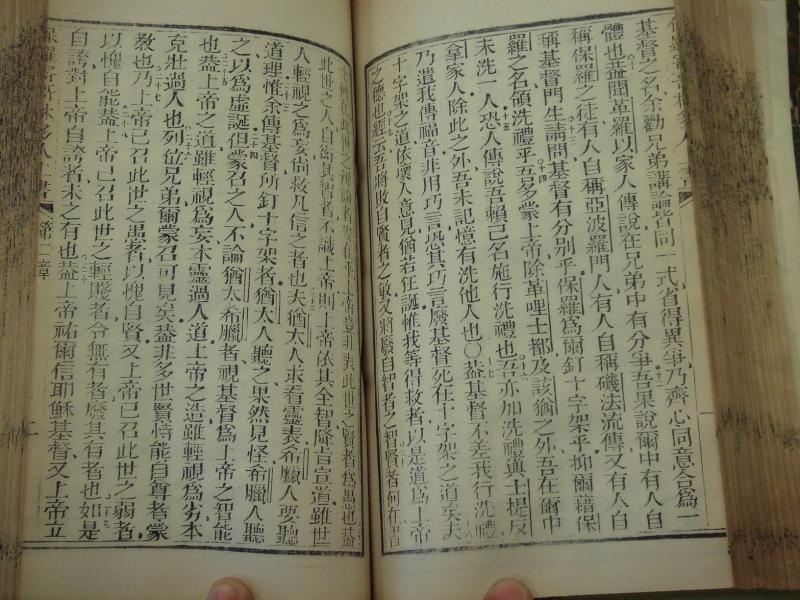 基督之名余勸兄弟講論皆同一式省得異爭乃齊心同意合為一
體也蓋聞革羅以家人傳說在兄弟中有分爭吾果說爾中有人自
稱保羅之徒有人自稱亞波羅門人有人自稱磯法流傳又有人自
稱基督門生請問基督有分別乎保羅為爾釘十字架乎抑爾藉保
羅之名領洗禮乎吾多蒙上帝除革哩士都及該猶之外吾在爾中
未洗一人恐人傳說吾賴己名施行洗禮也吾亦加洗禮與士提反
拿家人除此之外吾未記憶有洗他人也〇蓋基督不差我行洗禮
乃遣我傳福音非用巧言恐其巧言廢基督死在十字架之道矣夫
十字架之道依壞人意見猶若狂誕惟我等得救者以是道為上帝
之德也經云吾將敗自賢者之敏又將廢自智者之智賢者何在
何在此世之辯論者安在乎上帝豈非表此世之賢者為愚也蓋
此世之人自恃其智者不識上帝則上帝依其全智降旨宣道雖世
人輕視之為妄尚救凡信之者也夫猶太人求看靈表希臘人要聽
道理惟余傳基督所釘十字架者猶太人聽之果然見怪希臘人聽
之以為虛誕但蒙召之人不論猶太希臘者視基督為上帝之智能
也蓋上帝之道雖輕視為妄本靈過人道上帝之造雖輕視為劣本
克壯過人也列位兄弟爾蒙召可見矣蓋非多世賢恃能自尊者蒙
教也乃上帝已召此世之愚者以愧自賢又上帝已召此世之弱者
以愧自能蓋上帝已召此世之輕賤者令無有者廢其有者也如是
自誇對上帝自誇者未之有也蓋上帝祐爾信耶穌基督又上帝立
保羅寄哥林多人上書 第二章 二